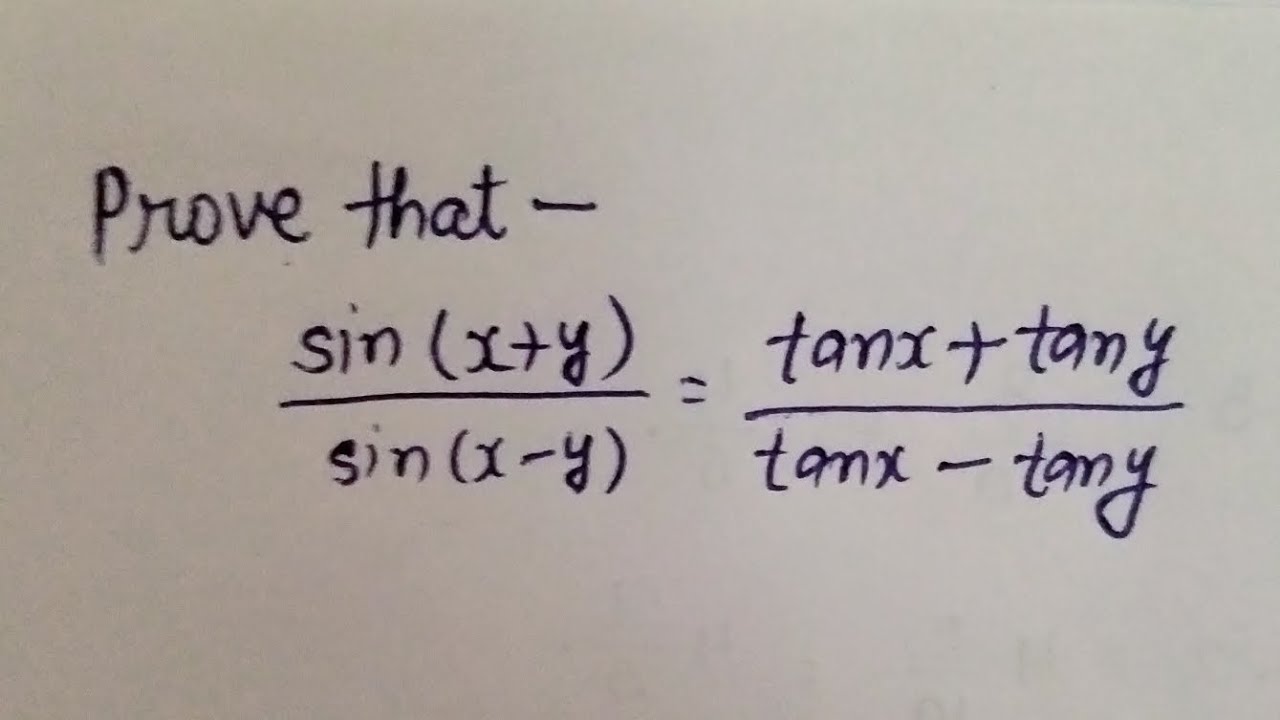 Prove that –
sin (x+y) / sin(x-y) = tanx + tany / tanx - tany